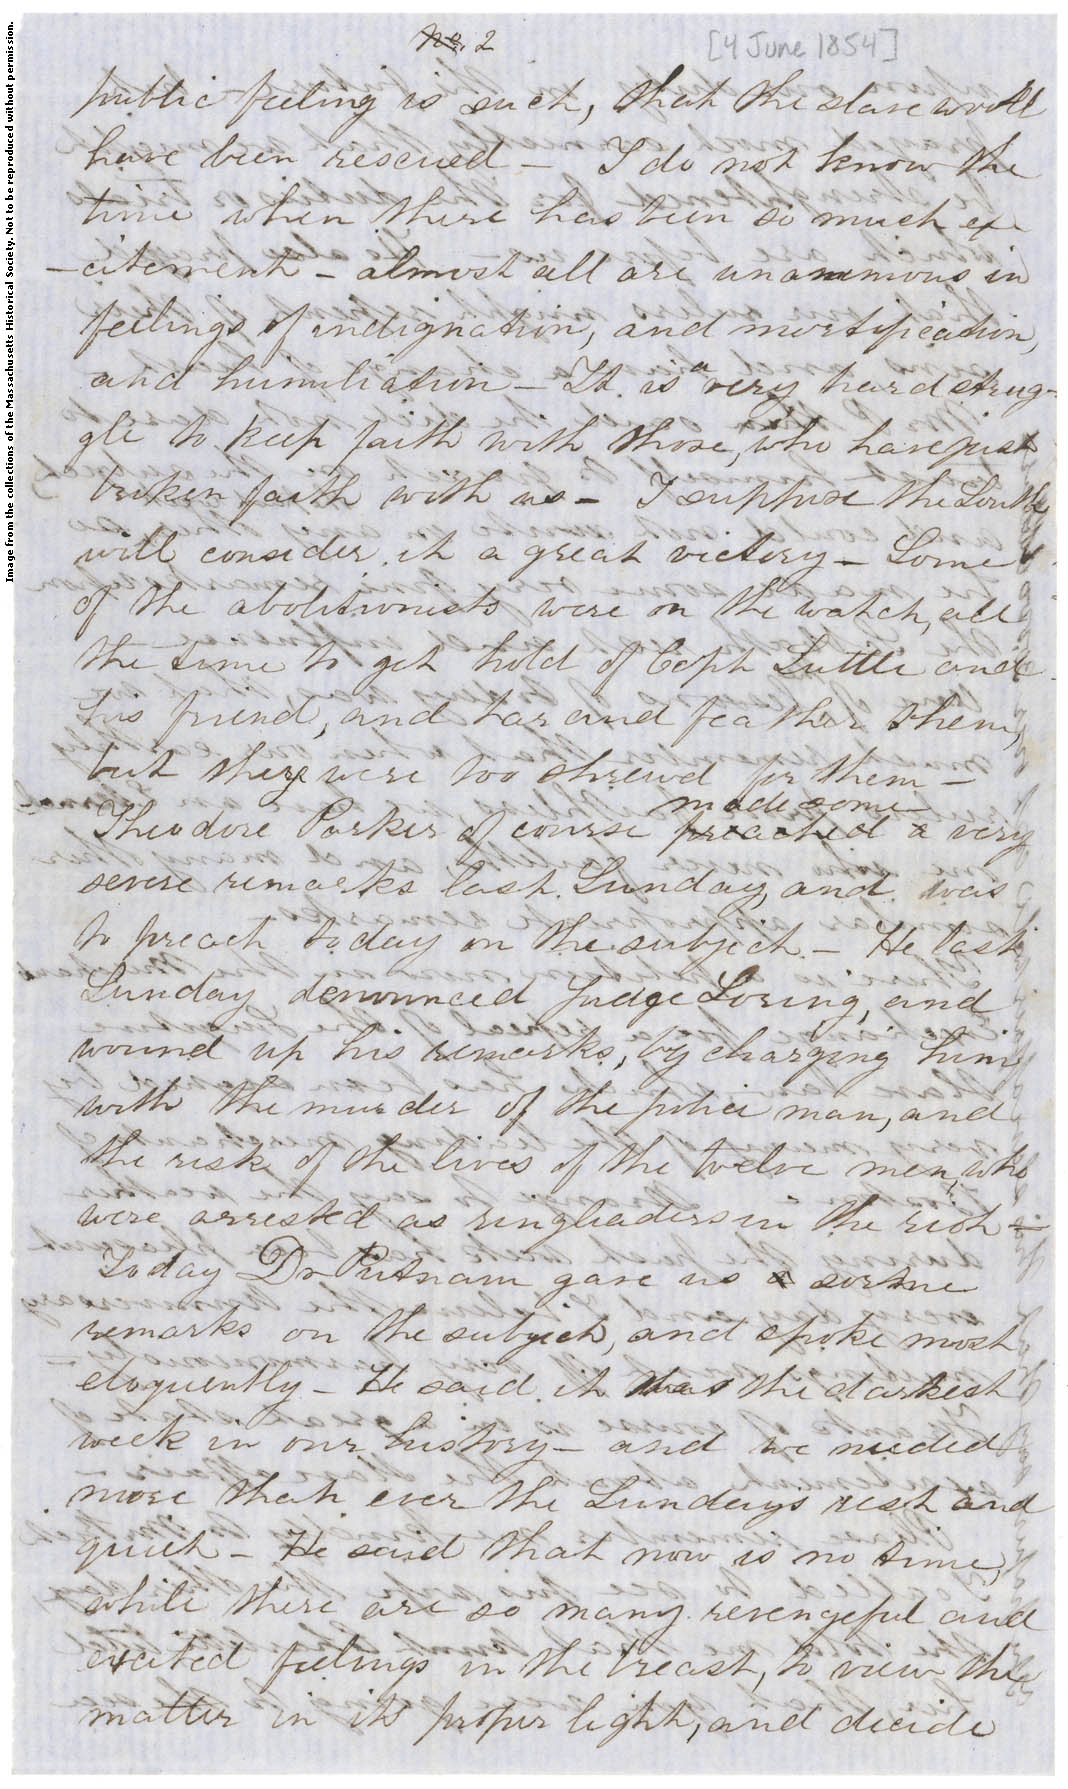 No. 2
[4 June 1854]
public feeling is such, that the slave would
have been rescued – I do not know the
time when there has been so much ex
-citement – almost all are unanimous in
feelings of indignation, and mortification,
and humiliation – It is a very hard strug-
gle to keep faith with those, who have just
broken faith with us – I suppose the South
will consider it a great victory – Some
of the abolitionists were on the watch, all
the time to get hold of Capt Suttle and
his friend, and tar and feather them,
but they were too shrewd for them –
made some
Theodore Parker of course preached a very
severe remarks last Sunday, and was
to preach today on the subject – He last
Sunday denounced Judge Loring, and
wound up his remarks, by charging him
with the murder of the police man, and
the risk of the lives of the twelve men, who
were arrested as ringleaders in the riot –
Today Dr Putnam gave us a some
remarks on the subject, and spoke most
eloquently – He said it was the darkest
week in our history – and we needed
more than ever the Sunday's rest and
quiet – He said that now is no time,
while there are so many revengeful and
excited feelings in the breast, to view the
matter in its proper light, and decide
Image from the collections of the Massachusetts Historical Society. Not to be reproduced without permission.